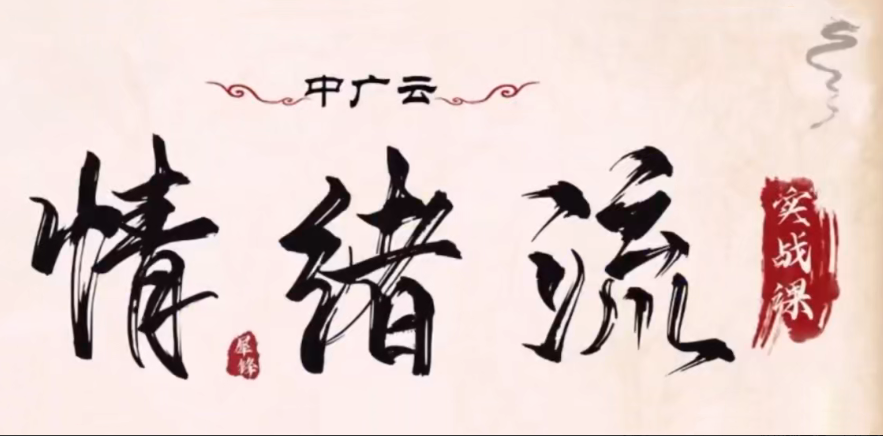 中广云
情绪流
犀锋
实战课